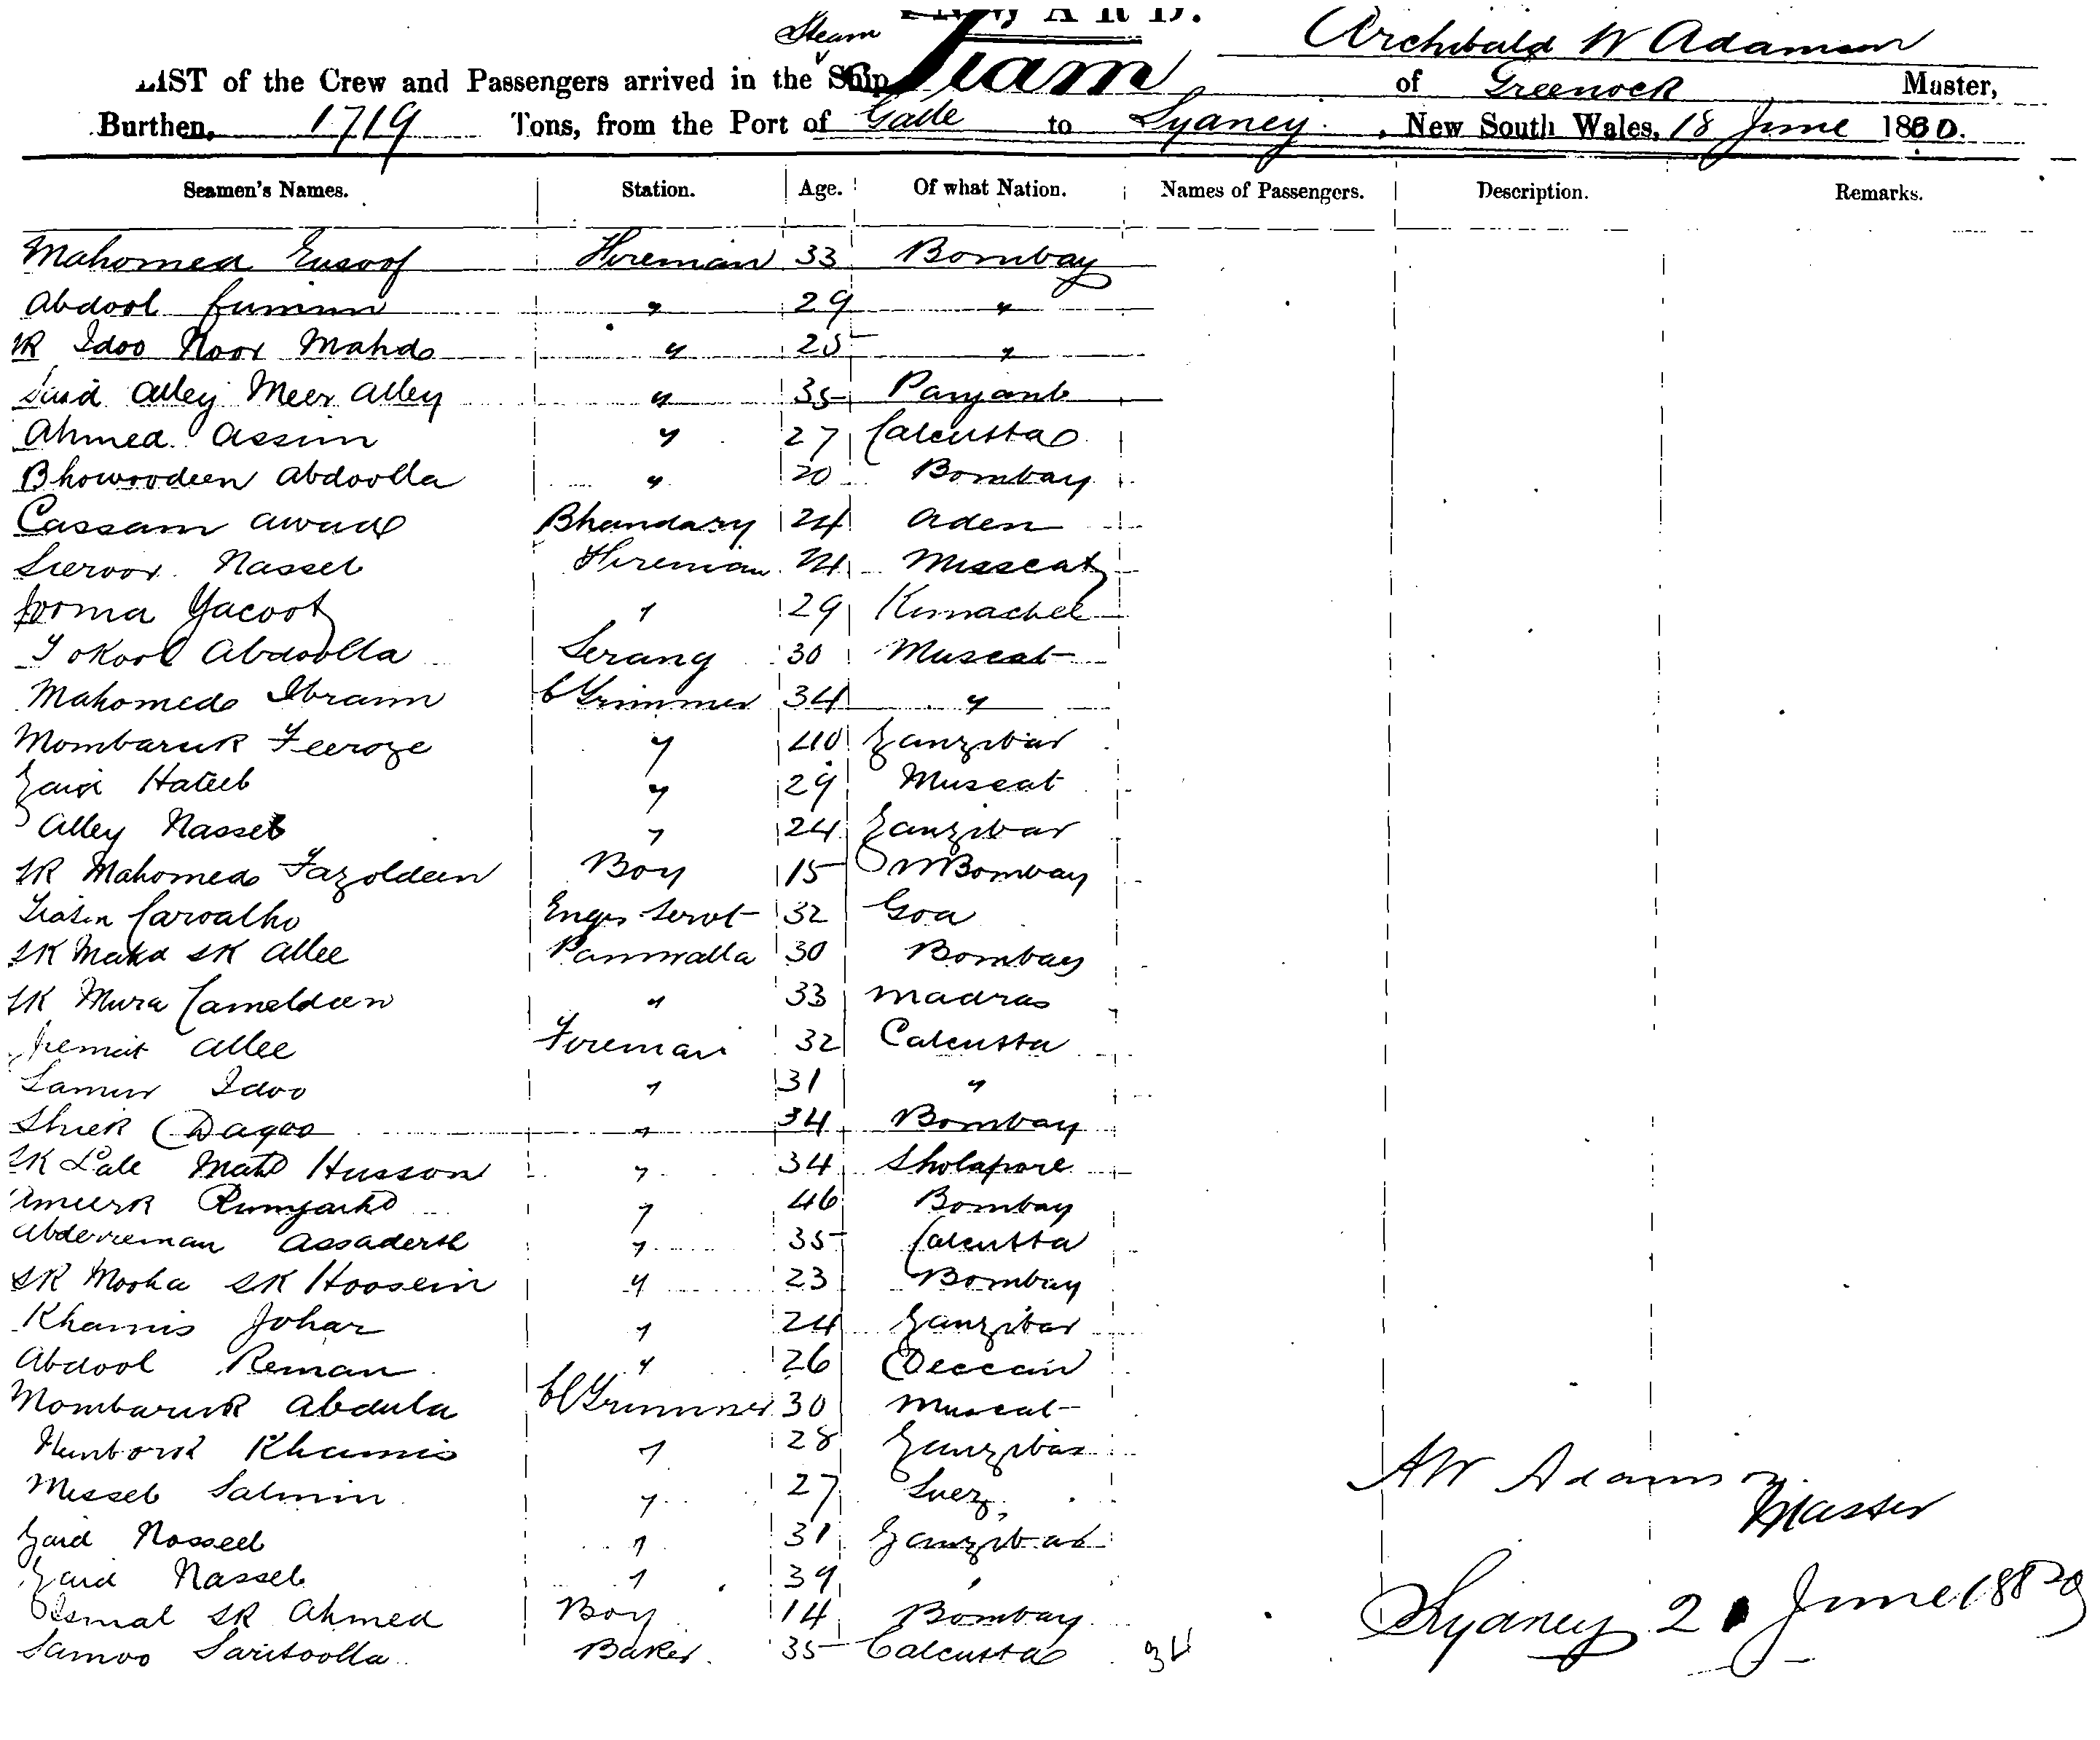 Steam
Archibald W Adamson
LIST of the Crew and Passengers arrived in the Ship Siam of Greenock Master,
Burthen, 1719 Tons, from the Port of Galle to Sydney, New South Wales, 18 June 1880.
Seamen's Names. Station. Age. Of what Nation. Names of Passengers. Description. Remarks.
Mahomed Eusoof Fireman 33 Bombay
Abdool " 29 "
SK Idoo Noor Mahd " 25 "
Alley Meer Alley " 35
Ahmed Assim " 27 Calcutta
Bhowoodeen Abdoolla " 20 Bombay
Cassam Awad Bhandary 24 Aden
Nasseb Fireman 24 Muscat
Jorma Yacoot " 29
Abdoolla Serang 30 Muscat
Mahomed Ibraim C Trimmer 34 "
Mombaruk Feeroze " 40 Zanzibar
Zaid Hateeb " 29 Muscat
Alley Nasseb " 24 Zanzibar
SK Mahomed Fazoldeen Boy 15 Bombay
Carvalho Engrs Servt 32 Goa
SK Mahd SK Allee Paniwalla 30 Bombay
SK Mura Cameldeen " 33 Madras
Allee Fireman 32 Calcutta
Idoo " 31 "
Shiek Dagoo " 34 Bombay
SK Lall Mahd Husson " 34 Sholapore
46 Bombay
Abderreman " 35 Calcutta
SK Moosa SK Hoosein " 23 Bombay
Khamis Johar " 24 Zanzibar
Abdool Reman " 26 Deccan
Mombaruk Abdula Cl Trimmer 30 Muscat
Khamis " 28 Zanzibar
Messeb Salmin " 27 Suez
Zaid Nosseeb " 31 Zanzibar
Zaid Nasseb " 39 "
Esmal SK Ahmed Boy 14 Bombay
Samoo Saritoolla Baker 35 Calcutta 34
AW Adamson
Master
Sydney 21 June 1880